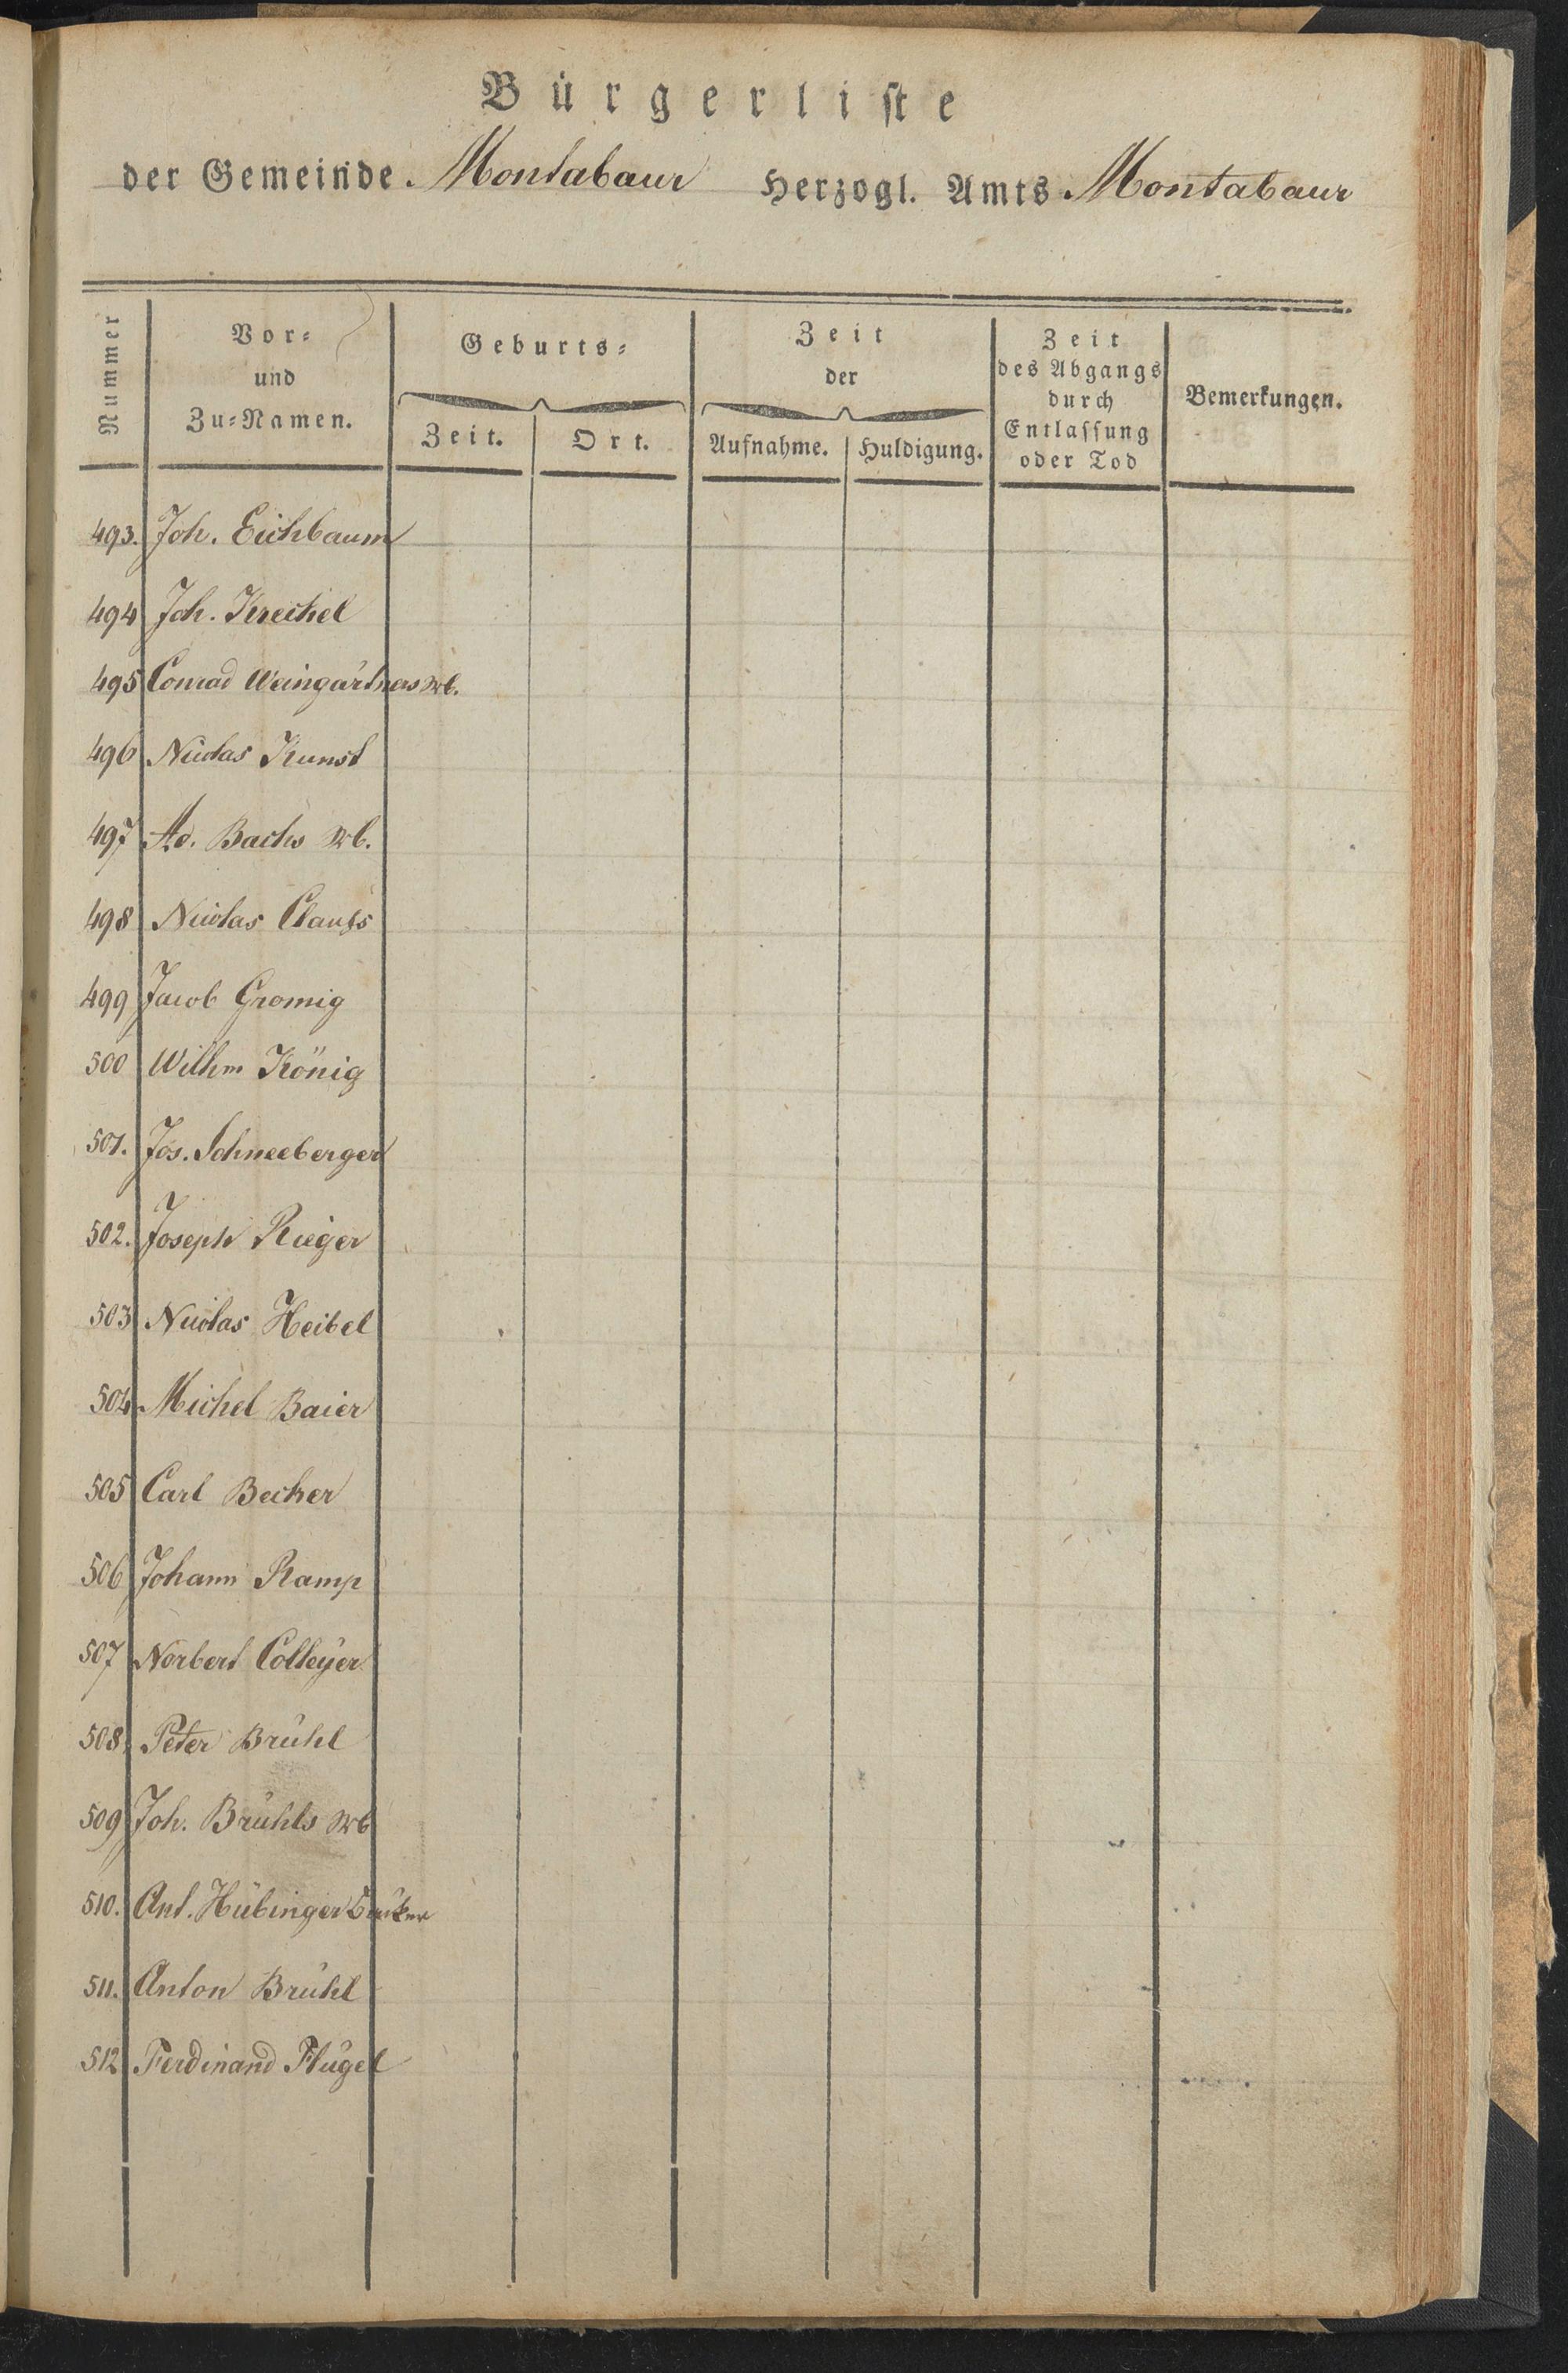 Bürgerliste
der Gemeinde Montabaur Herzogl. Amts Montabaur
Nummer
Vor-
und
Zu-Namen.
Geburts-
Zeit. Ort.
Zeit
der
Aufnahme. Huldigung.
Zeit
des Abgangs
durch
Entlassung
oder Tod
Bemerkungen.
493. Joh. Eichbaum
494 Joh. Krechel
495 Conrad Weingärtners Wb.
496 Nicolas Kunst
497 Ad. Bachs Wb.
498 Nicolas Clauſs
499 Jacob Gromig
500 Wilhm König
501. Jos. Schneeberger
502. Joseph Rieger
503 Nicolas Heibel
504 Michel Baier
505 Carl Becker
506 Johann Kamp
507 Norbert Colleyer
508. Peter Brühl
509 Joh. Brühls Wb
510. Ant. Hübinger
511. Anton Brühl
512 Ferdinand Flügel